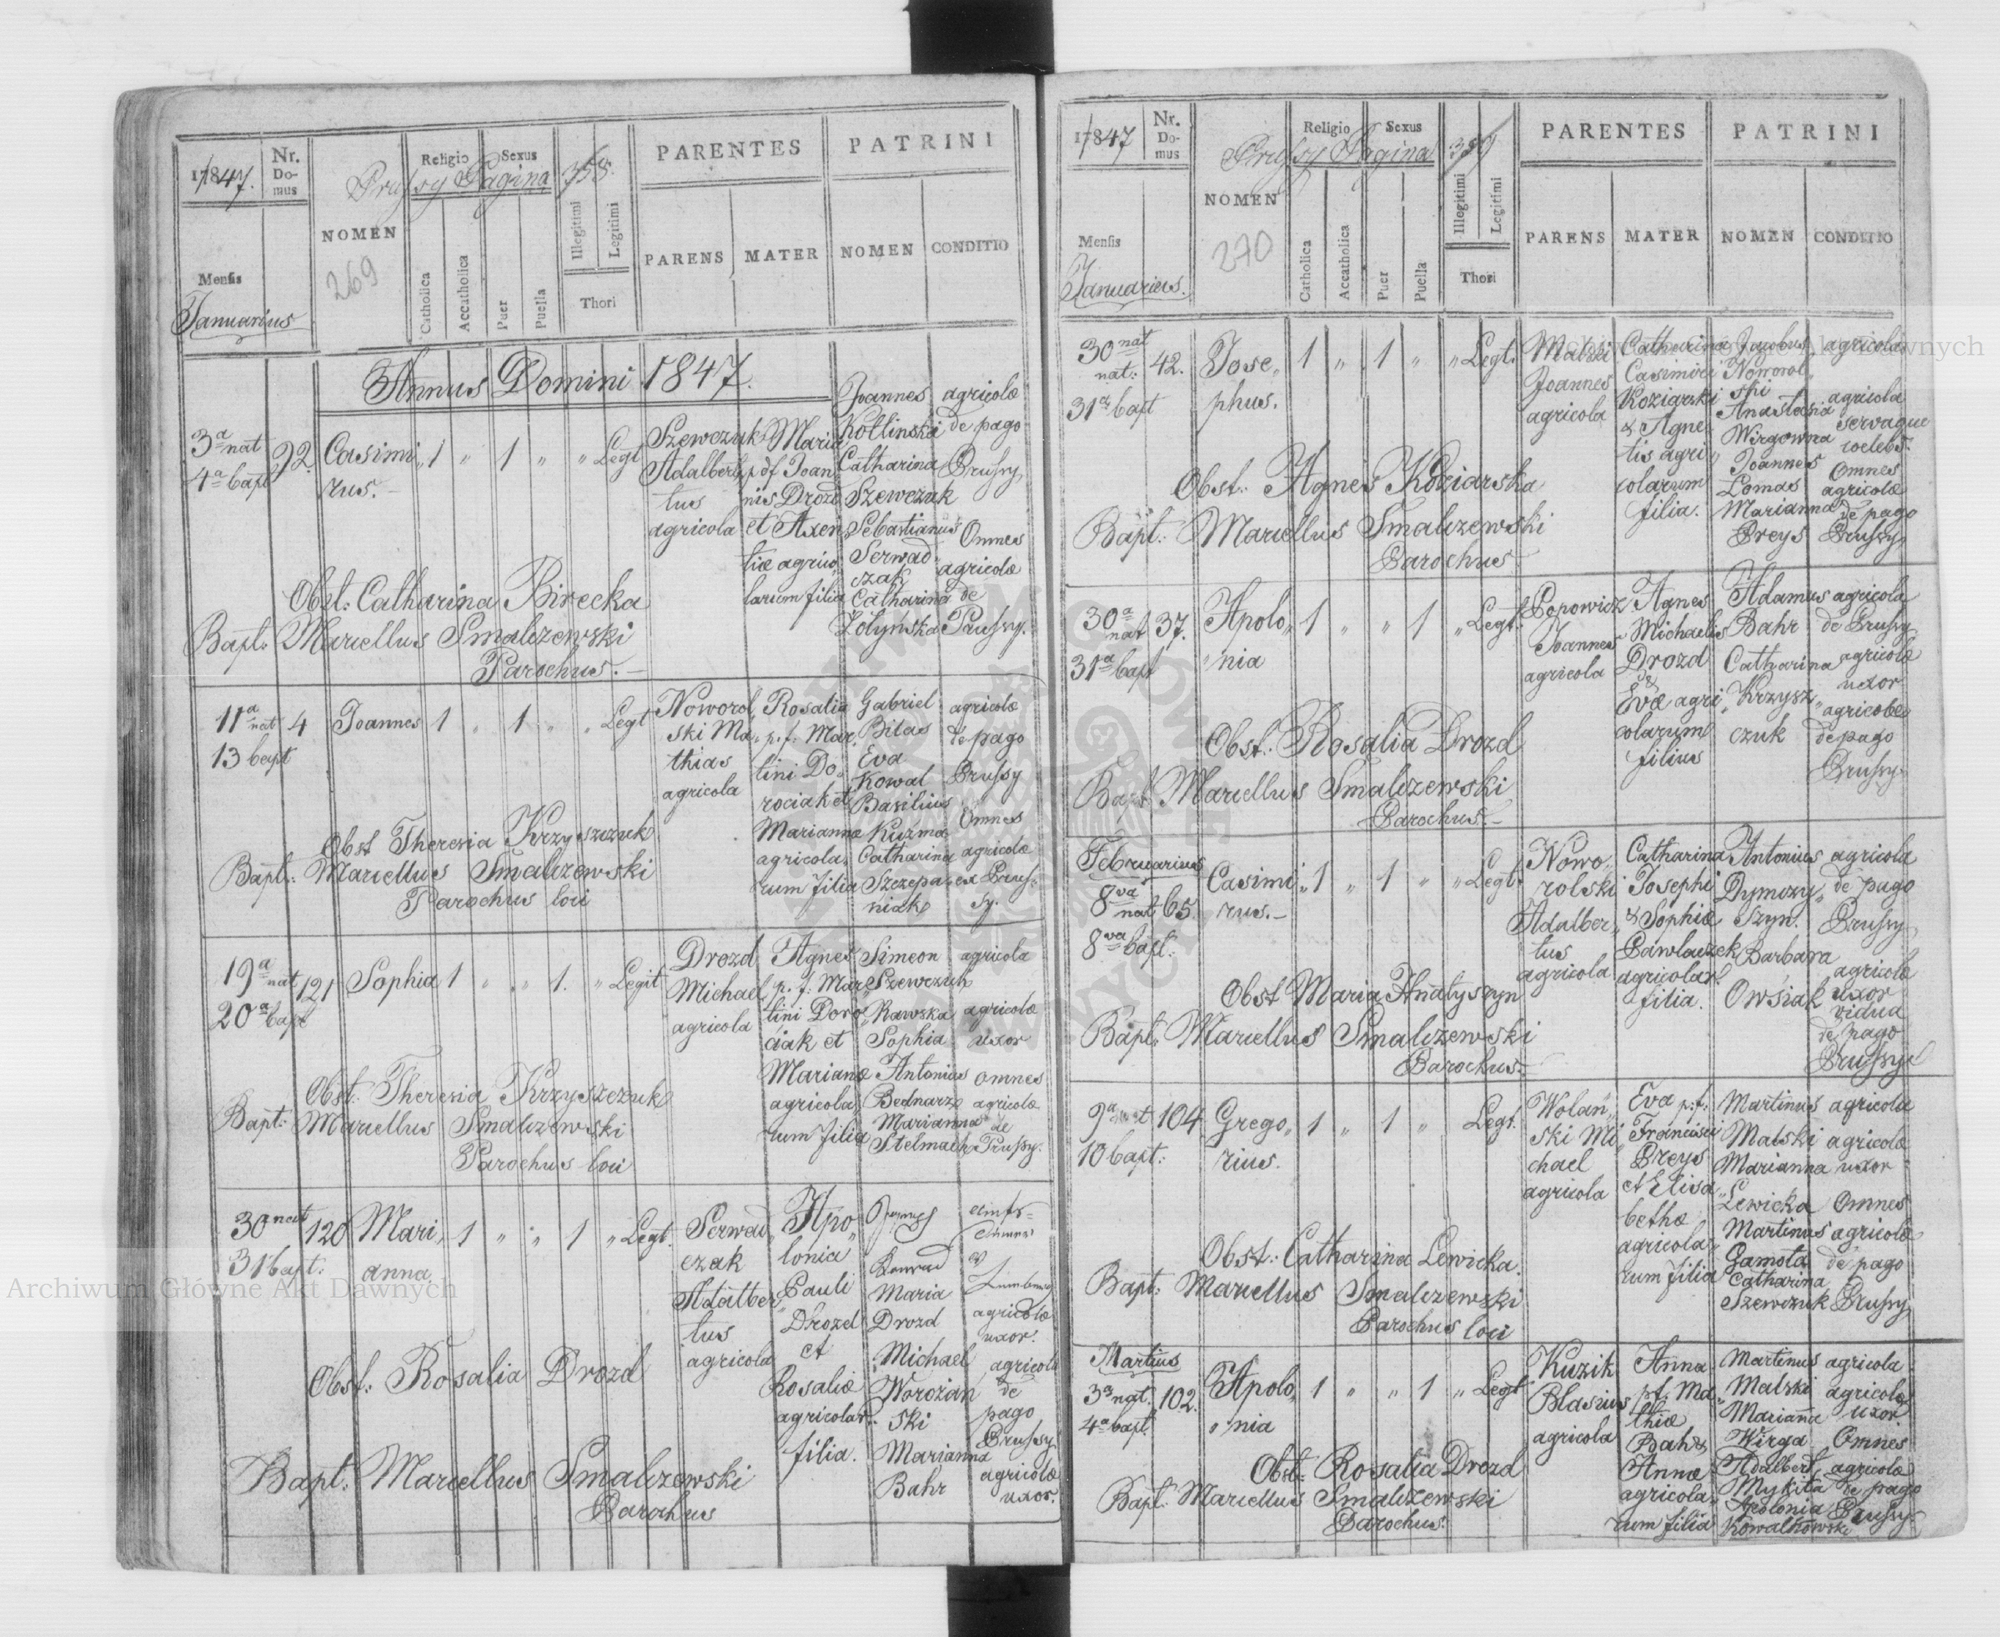 17847.
Nr. Do-mus
Prussy Pagina 358.
NOMEN
269
Religio
Sexus
Catholica
Accatholica
Puer
Puella
Illegitimi
Legitimi
Thori
PARENTES
PARENS
MATER
PATRINI
NOMEN
CONDITIO
Mensis
Januarius
Annus Domini 1847.
3a nat
4a bapt
92.
Casimi„
rus.
1 „ 1 „ „ Legt
Szewczuk
Adalber„
tus
agricola
Maria
p d f Joan
nis Drozd
et Axen
tiæ agrico„
larum filia
Joannes
Kotlinski
Catharina
Szewczak
Sebastianus
Serwad„
czak
Catharina
Żołyńska
agricolæ
de pago
Prussy
Omnes
agricolæ
de
Prussy.
Obst: Catharina Birecka
Bapt: Marcellus Smalczewski
Parochus.
11a nat
13 bapt
4
Joannes
1 „ 1 „ „ Legt
Noworol„
ski Ma„
thias
agricola
Rosalia
p. f. Mar„
tini Do„
rociak et
Mariannæ
agricola„
rum filia
Gabriel
Bilas
Eva
Kowal
Basilius
Kuzma
Catharina
Szczepa„
niak
agricolæ
de pago
Prussy
Omnes
agricolæ
ex Prus„
sy.
Obst Theresia Krzyszczuk
Bapt: Marcellus Smalczewski
Parochus loci
19a nat
20a bapt
121
Sophia
1 „ „ 1. „ Legit
Drozd
Michael
agricola
Agnes
p. f. Mar„
tini Doro„
ciak et
Marianæ
agricola„
rum filia
Simeon
Szewczuk
Rawska
Sophia
Antonius
Bednarz
Marianna
Stelmach
agricola
agricolæ
uxor
omnes
agricolæ
de
Prussy.
Obst: Theresia Krzyszczuk
Bapt: Marcellus Smalczewski
Parochus loci
30 nat
31 bapt:
120
Mari„
anna
1 „ „ 1 „ Legt.
Serwad„
czak
Adalber„
tus
agricola
Apo„
lonia
Pauli
Drozd
et
Rosaliæ
agricolar.
filia.
Konrad
Maria
Drozd
Michael
Worożań
ski
Marianna
Bahr
agricolæ
uxor.
agricola
de
pago
Prussy
agricolæ
uxor.
Obst: Rosalia Drozd
Bapt: Marcellus Smalczewski
Parochus
17847
Nr. Do-mus
Prussy Pagina 359
NOMEN
270
Religio
Sexus
Catholica
Accatholica
Puer
Puella
Illegitimi
Legitimi
Thori
PARENTES
PARENS
MATER
PATRINI
NOMEN
CONDITIO
Mensis
Januarius.
30 nat
nat:
31a bapt
42.
Jose„
phus.
1 „ 1 „ „ Legt.
Malski
Joannes
agricola
Catharina
Casimiri
Koziarski
& Agne„
tis agri„
colarum
filia.
Jacobus
Noworol„
ski
Anastasia
Wirgowna
Joannes
Lomas
Marianna
Preys
agricola
agricola
servaque
coelebs.
Omnes
agricolæ
de pago
Prussy
Obst: Agnes Koziarska
Bapt: Marcellus Smalczewski
Parochus
30a nat
31a bapt
37.
Apolo„
„nia
1 „ „ 1 „ Legt.
Popowicz
Joannes
agricola
Agnes
Michaelis
Drozd
&
Evæ agri„
colarum
filius
Adamus
Bahr
Catharina
Krzysz„
czuk
agricola
de Prussy
agricolæ
uxor
agricolæ
de pago
Prussy
Obst: Rosalia Drozd
Bapt Marcellus Smalczewski
Parochus.
Februarius
8va nat
8va bapt.
65.
Casimi„
rus.
1 „ 1 „ „ Legt.
Nowo„
rolski
Adalber„
tus
agricola
Catharina
Josephi
& Sophiæ
Pawlaczek
agricolar.
filia.
Antonius
Dymczy„
szyn.
Barbara
Owsiak
agricola
de pago
Prussy
agricolæ
uxor
vidua
de pago
Prussy
Obst Maria Hnatyszyn
Bapt. Marcellus Smalczewski
Parochus.
9a nat
10 bapt:
104
Grego„
rius.
1 „ 1 „ Legt.
Wolań„
ski Mi„
chael
agricola
Eva p: f:
Francisci
Preys
et Elisa„
bethæ
agricola„
rum filia
Martinus
Malski
Marianna
Lewicka
Martinus
Gamota
Catharina
Szewczuk
agricola
agricolæ
uxor
Omnes
agricolæ
de pago
Prussy
Obst: Catharina Lewicka.
Bapt: Marcellus Smalczewski
Parochus loci
Martius
3a nat.
4a bapt.
102.
Apolo„
„nia
1 „ „ 1 „ Legt
Kuzik
Blasius
agricola
Anna
p f. Ma„
thiæ
Bah &
Annæ
agricola„
rum filia
Martinus
Malski
Marianna
Wirga
Adalbert„
Mykita
Apolonia
Kowalkowska
agricola
agricolæ
uxor
Omnes
agricolæ
de pago
Prussy
Obst: Rosalia Drozd
Bapt: Marcellus Smalczewski
Parochus.
Archiwum Główne Akt Dawnych
Archiwum Główne Akt Dawnych